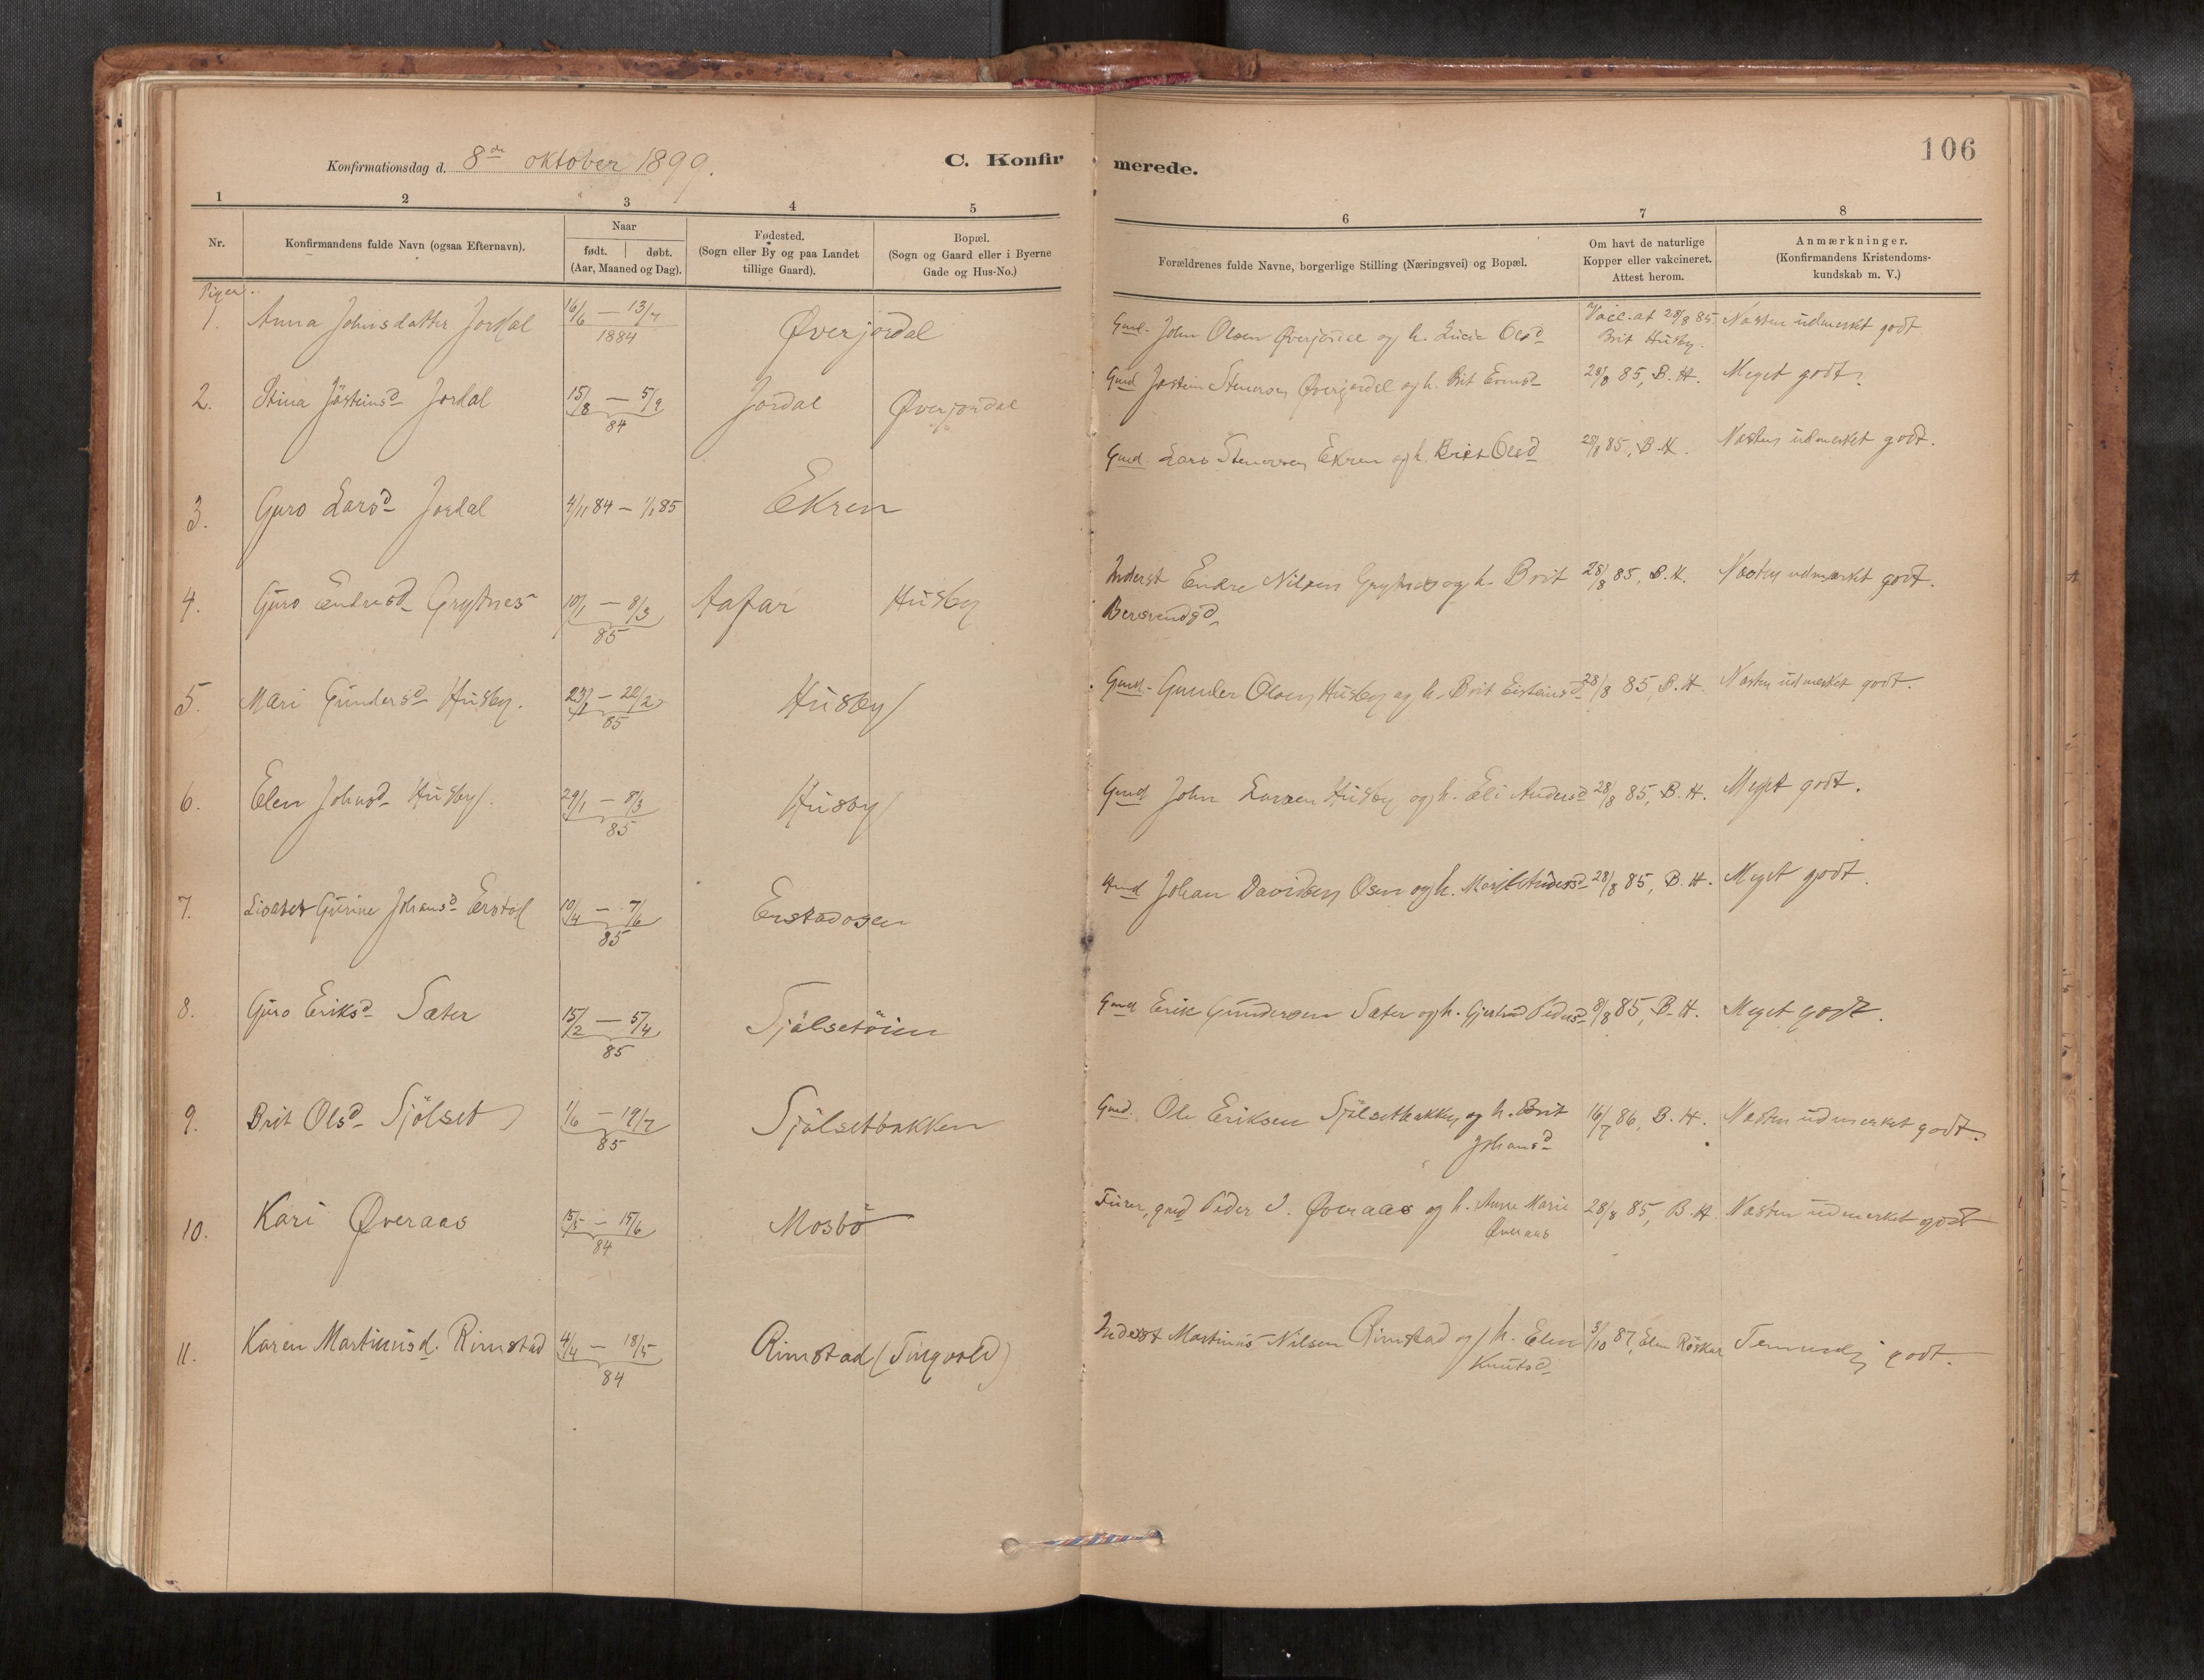 106
Konfirmationsdag d. 8de oktober 1899.
C. Konfirmerede.
1 2 3 4 5 6 7 8
Nr.
Konfirmandens fulde Navn (ogsaa Efternavn).
Naar
født. | døbt.
(Aar, Maaned og Dag).
Fødested.
(Sogn eller By og paa Landet
tillige Gaard).
Bopæl.
(Sogn og Gaard eller i Byerne
Gade og Hus-No.)
Forældrenes fulde Navne, borgerlige Stilling (Næringsvei) og Bopæl.
Om havt de naturlige
Kopper eller vakcineret.
Attest herom.
Anmærkninger.
(Konfirmandens Kristendoms-
kundskab m. V.)
Piger.
1. Anna Johnsdatter Jordal 16/6 — 13/7 1884 Øverjordal Gmd. John Olsen Øverjordal og h. Lucie Olsd Vacc. at 28/8 85 Næsten udmerket godt
Brit Husby.
2. Stina Jösteinsd Jordal 15/8 — 5/9 84 Jordal Øverjordal Gmd Jostein Stenersen Øverjordal og h. Brit 28/8 85, B. H. Meget godt.
3. Guro Larsd Jordal 4/11 84 — 1/1 85 Ekren Gmd. Lars Stenersen Ekren og h. Brit Olsd 28/8 85, B. H. Næsten udmerket godt.
4. Guro Endresd Grytnes 10/1 — 8/3 85 Aafar Husby Inderst Endre Nilsen Grytnes og h. Brit 28/8 85, B. H. Næsten udmærket godt.
Bersvendsd
5. Mari Gundersd Husby. 23/1 — 22/2 85 Husby Gmd. Gunder Olsen Husby og h. Brit Eisteinsd 28/8 85, B. H. Næsten udmerket godt.
6. Elen Johnsd Husby. 29/1 — 8/3 85 Husby Gmd John Larsen Husby og h. Eli Andersd 28/8 85, B. H. Meget godt.
7. Lisabet Gurine Johansd Erstad 10/4 — 7/6 85 Erstadosen Gmd Johan Davidsen Osen og h. Marit Andersd 28/8 85, B. H. Meget godt.
8. Guro Eriksd Sæter 15/2 — 5/4 85 Sjölsetöien Gmd Erik Gundersen Sæter og h. Gjertrud Pedersd 8/8 85, B. H. Meget godt.
9. Brit Olsd Sjölset 1/6 — 19/7 85 Sjölsetbakken Gmd. Ole Eriksen Sjölsetbakken og h. Brit 16/7 86, B. H. Næsten udmerket godt.
Johansd
10. Kari Øveraas 15/5 — 15/6 84 Mosbö Furer, gmd Peder I. Øveraas og h. Anne Marie 28/8 85, B. H. Næsten udmerket godt
Øveraas
11. Karen Martinusd. Rimstad 4/4 — 18/5 84 Rimstad (Tingvold) Inderst Martinus Nilsen Rimstad og h. Elen 3/10 87, Elen Röskar Temmelig godt.
Knutsd